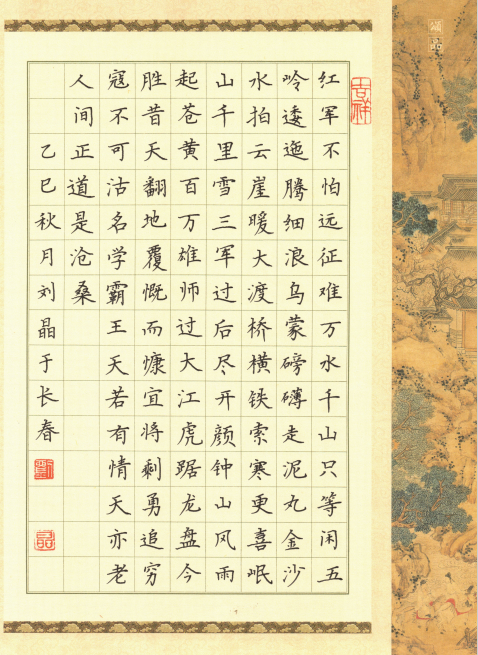 吉祥
红军不怕远征难万水千山只等闲五
岭逶迤腾细浪乌蒙磅礴走泥丸金沙
水拍云崖暖大渡桥横铁索寒更喜岷
山千里雪三军过后尽开颜钟山风雨
起苍黄百万雄师过大江虎踞龙盘今
胜昔天翻地覆慨而慷宜将剩勇追穷
寇不可沽名学霸王天若有情天亦老
人间正道是沧桑
乙巳秋月刘晶于长春